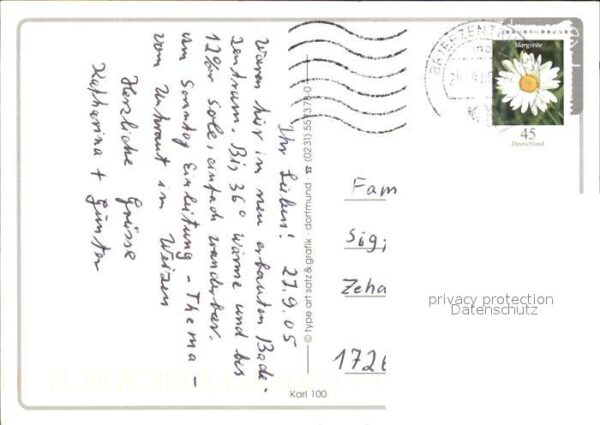 Ihr Lieben! 27.9.05
Waren hier in neu erbauten Bade-
zentrum. Bis 36° wärme und bis
12%r Sole, einfach wunderbar.
am Sonntag Einleitung - Thema -
vom Unkraut im Weizen
Herzliche Grüsse
Katharina + Günter
© type art satz & grafik · dortmund · ☎ (0231) 551373-0
Karl 100
BRIEFZENTR
Margerite
45
Deutschland
Fam
Sig
Zeha
1726
privacy protection
Datenschutz